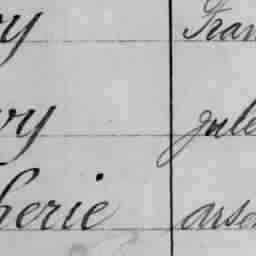 ry Fran
vy Jule
herie arsè